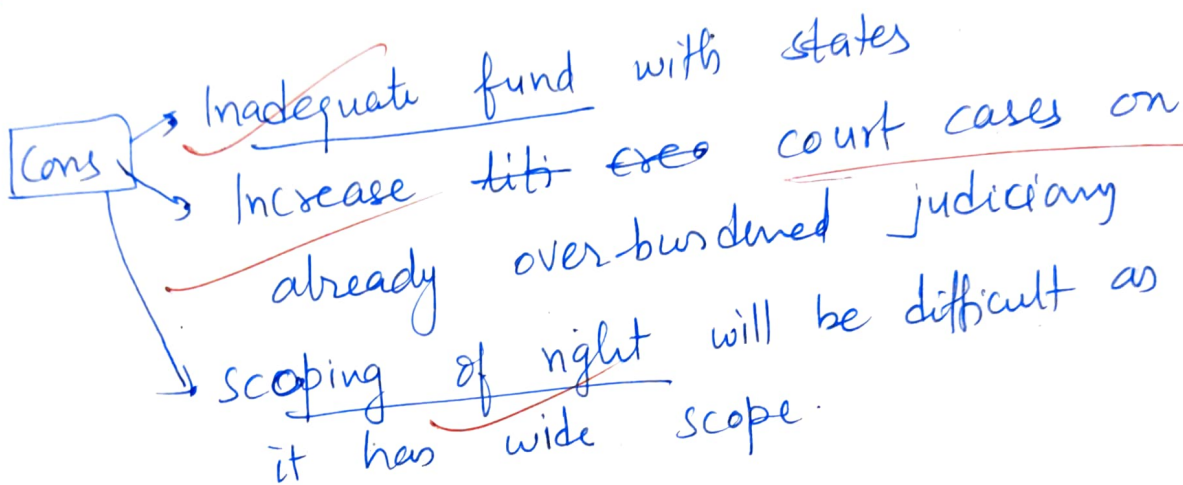 Cons
Inadequate fund with states
Increase court cases on
already overburdened judiciary
scoping of right will be difficult as
it has wide scope.